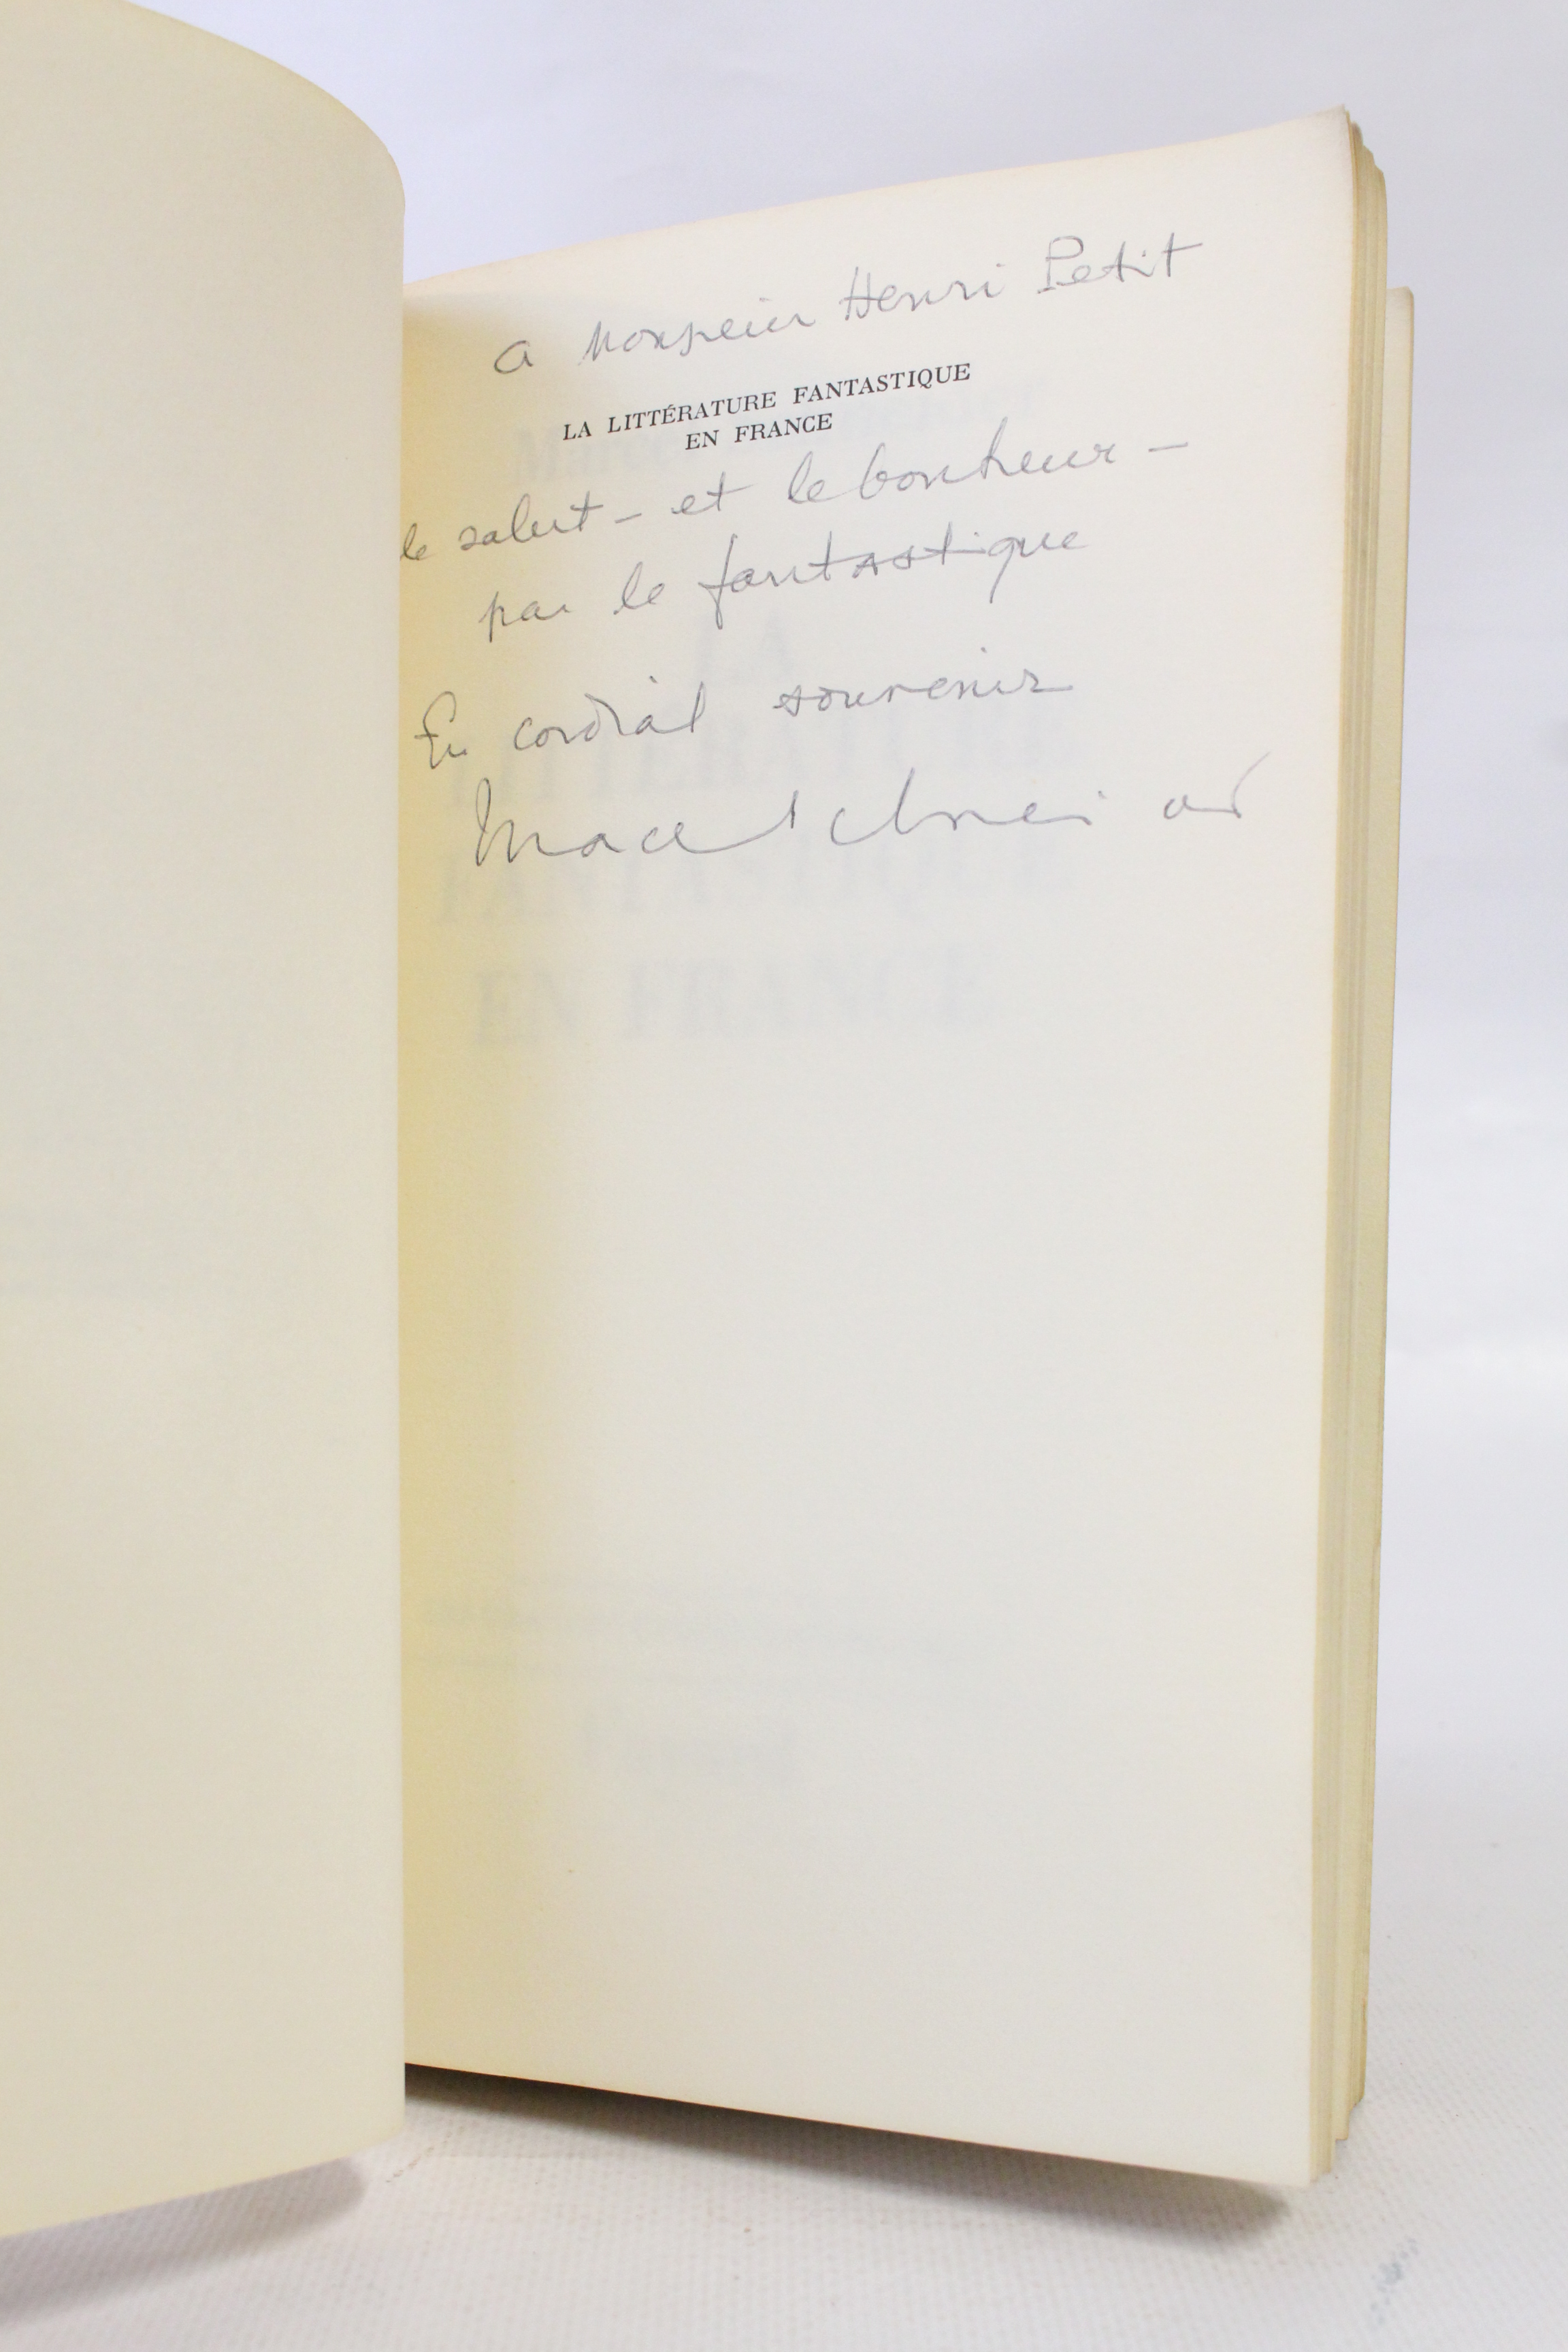 a Monsieur Henri Petit
LA LITTÉRATURE FANTASTIQUE
EN FRANCE
le salut – et le bonheur –
par le fantastique
En cordial souvenir
Marcel Schneider
LA
LITTÉRATURE
FANTASTIQUE
EN FRANCE